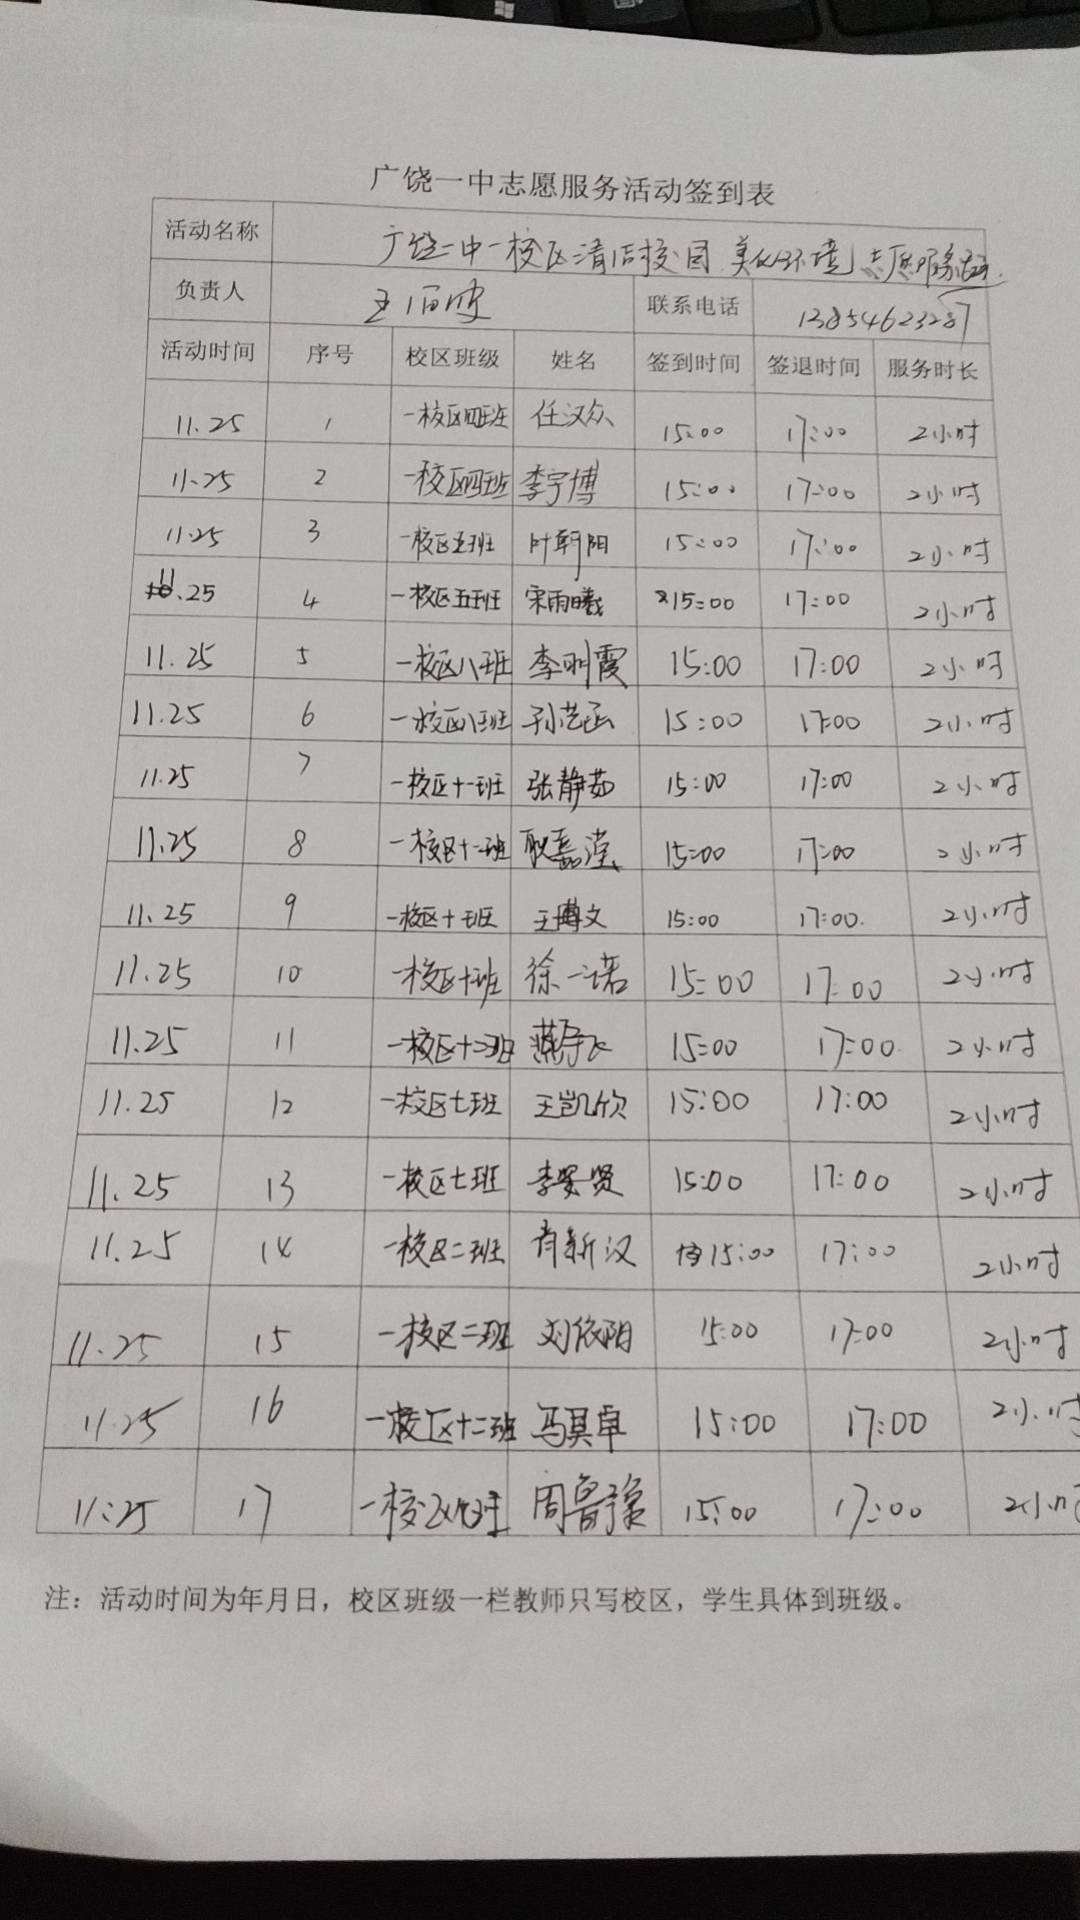 广饶一中志愿服务活动签到表
活动名称 广饶一中一校区清洁校园 美化环境 志愿服务活动
负责人 联系电话 13854623287
活动时间 序号 校区班级 姓名 签到时间 签退时间 服务时长
11.25 1 一校区四班 任汉众 15:00 17:00 2小时
11.25 2 一校区四班 李宇博 15:00 17:00 2小时
11.25 3 一校区五班 叶朝阳 15:00 17:00 2小时
11.25 4 一校区五班 宋雨曦 15:00 17:00 2小时
11.25 5 一校区八班 李明霞 15:00 17:00 2小时
11.25 6 一校区八班 孙艺函 15:00 17:00 2小时
11.25 7 一校区十一班 张静茹 15:00 17:00 2小时
11.25 8 一校区十一班 耿嘉滢 15:00 17:00 2小时
11.25 9 一校区十班 王博文 15:00 17:00 2小时
11.25 10 一校区十班 徐一诺 15:00 17:00 2小时
11.25 11 一校区十二班 15:00 17:00 2小时
11.25 12 一校区七班 王凯欣 15:00 17:00 2小时
11.25 13 一校区七班 15:00 17:00 2小时
11.25 14 一校区二班 肖新汉 15:00 17:00 2小时
11.25 15 一校区二班 刘依阳 15:00 17:00 2小时
11.25 16 一校区十二班 冯昊卓 15:00 17:00 2小时
11.25 17 一校区 周鲁豫 15:00 17:00 2小时
注：活动时间为年月日，校区班级一栏教师只写校区，学生具体到班级。